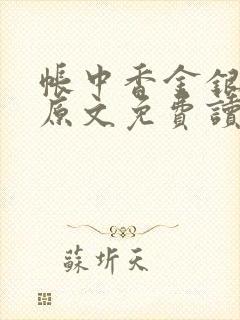 帳中香金銀
原文免費讀
蘇圻天